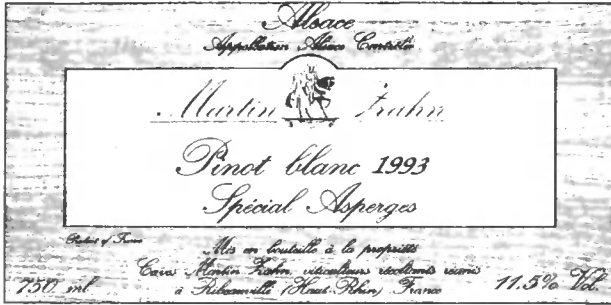 Alsace
Appellation Alsace Contrôlée
Martin Zahn
Pinot blanc 1993
Spécial Asperges
Produit of France
Mis en bouteille à la propriété
Cave Martin Zahn, viticulteurs récoltants réunis
750 ml à Ribeauvillé (Haut-Rhin) France 11.5% Vol.